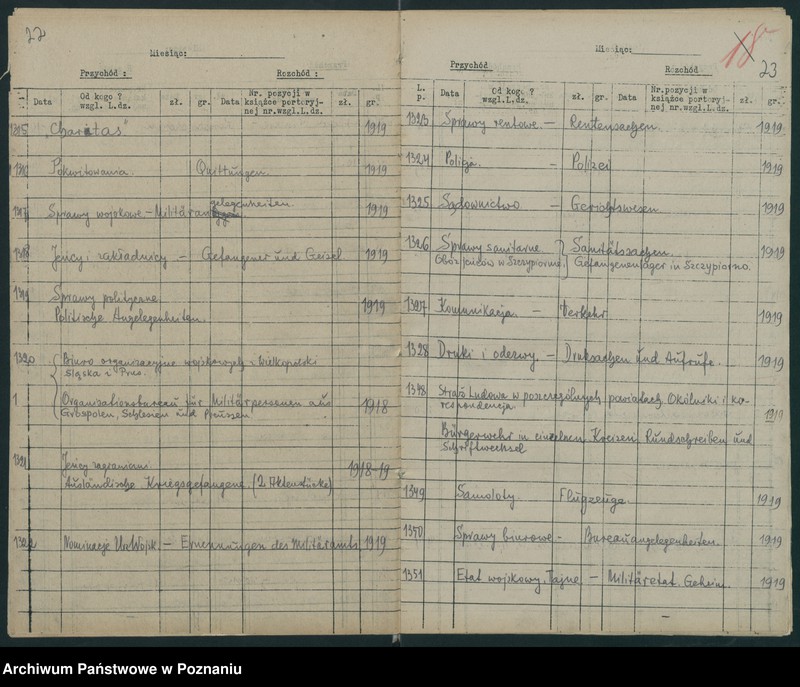 22
Miesiąc:
Przychód : Rozchód :
Data Od kogo ? wzgl.L.dz. zł. gr. Data Nr. pozycji w książce portoryj-nej nr.wzgl.L.dz. zł. gr.
1315 "Charitas" 1919
1316 Pokwitowania. Quittungen. 1919
gelegenheiten.
1317 Sprawy wojskowe - Militäran 1919
1318 Jeńcy i zakładnicy - Gefangener und Geisel 1919
1319 Sprawy polityczne
Politische Angelegenheiten. 1919
1320 Biuro organizacyjne wojskowych z Wielkopolski
Śląska i Prus.
Organisationsbureau für Militärpersonen aus
Grosspolen, Schlesien und Preussen 1918
1321 Jeńcy zagraniczni
Ausländische Kriegsgefangene. (2 Aktenstücke) 1918-19
1322 Nominacje - Ernennungen des Militäramts 1919
18
23
Miesiąc:
Przychód Rozchód
L. p. Data Od kogo ? wzgl.L.dz. zł. gr. Data Nr.pozycji w książce portoryj-nej nr.wzgl.L.dz. zł. gr.
1323 Sprawy rentowe. - Rentensachen. 1919
1324 Policja. - Polizei 1919
1325 Sądownictwo - Gerichtswesen 1919
1326 Sprawy sanitarne Sanitätssachen. 1919
Obóz jeńców w Szczypiornie. Gefangenenlager in Szczypiorno.
1327 Komunikacja. - Verkehr 1919
1328 Druki i odezwy. - Druksachen und Aufrufe. 1919
1348 Straż Ludowa w poszczególnych powiatach. Okólniki i ko-
respondencja 1919
Bürgerwehr in einzelnen Kreisen. Rundschreiben und
Schriftwechsel
1349 Samoloty. Flugzeuge. 1919
1350 Sprawy biurowe - Bureauangelegenheiten. 1919
1351 Etat wojskowy. Tajne - Militäretat. Geheim. 1919
Archiwum Państwowe w Poznaniu